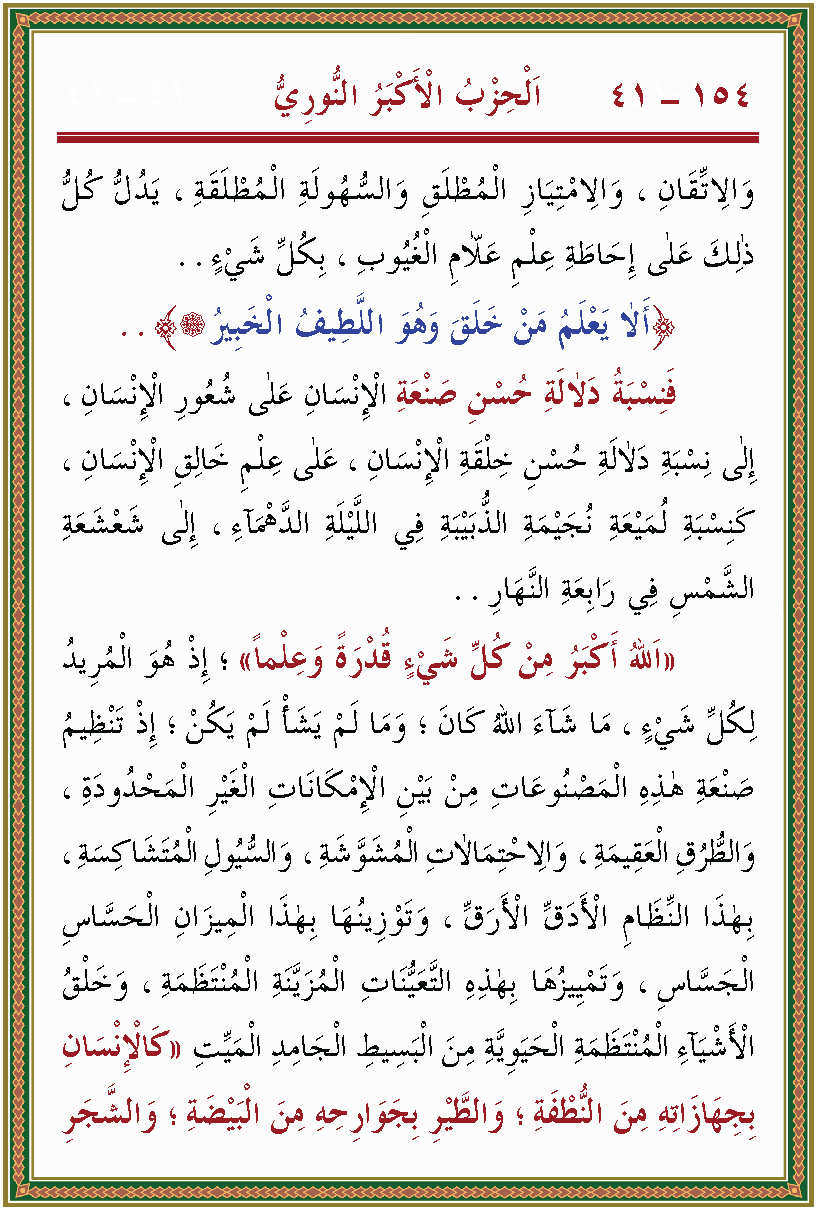 ١٥٤ – ٤١ اَلْحِزْبُ الْأَكْبَرُ النُّورِيُّ ٤١ – ٤١
وَالِاتِّقَانِ ، وَالِامْتِيَازِ الْمُطْلَقِ وَالسُّهُولَةِ الْمُطْلَقَةِ ، يَدُلُّ كُلُّ
ذٰلِكَ عَلٰى إِحَاطَةِ عِلْمِ عَلَّامِ الْغُيُوبِ ، بِكُلِّ شَيْءٍ . .
﴿أَلَا يَعْلَمُ مَنْ خَلَقَ وَهُوَ اللَّطِيفُ الْخَبِيرُ ۞﴾ . .
فَنِسْبَةُ دَلَالَةِ حُسْنِ صَنْعَةِ الْإِنْسَانِ عَلٰى شُعُورِ الْإِنْسَانِ ،
إِلٰى نِسْبَةِ دَلَالَةِ حُسْنِ خِلْقَةِ الْإِنْسَانِ ، عَلٰى عِلْمِ خَالِقِ الْإِنْسَانِ ،
كَنِسْبَةِ لُمَيْعَةِ نُجَيْمَةِ الذُّبَيْبَةِ فِي اللَّيْلَةِ الدَّهْمَآءِ ، إِلٰى شَعْشَعَةِ
الشَّمْسِ فِي رَابِعَةِ النَّهَارِ . .
«اَللهُ أَكْبَرُ مِنْ كُلِّ شَيْءٍ قُدْرَةً وَعِلْماً» ؛ إِذْ هُوَ الْمُرِيدُ
لِكُلِّ شَيْءٍ ، مَا شَآءَ اللهُ كَانَ ؛ وَمَا لَمْ يَشَأْ لَمْ يَكُنْ ؛ إِذْ تَنْظِيمُ
صَنْعَةِ هٰذِهِ الْمَصْنُوعَاتِ مِنْ بَيْنِ الْإِمْكَانَاتِ الْغَيْرِ الْمَحْدُودَةِ ،
وَالطُّرُقِ الْعَقِيمَةِ ، وَالِاحْتِمَالَاتِ الْمُشَوَّشَةِ ، وَالسُّيُولِ الْمُتَشَاكِسَةِ ،
بِهٰذَا النِّظَامِ الْأَدَقِّ الْأَرَقِّ ، وَتَوْزِينُهَا بِهٰذَا الْمِيزَانِ الْحَسَّاسِ
الْجَسَّاسِ ، وَتَمْيِيزُهَا بِهٰذِهِ التَّعَيُّنَاتِ الْمُزَيَّنَةِ الْمُنْتَظَمَةِ ، وَخَلْقُ
الْأَشْيَآءِ الْمُنْتَظَمَةِ الْحَيَوِيَّةِ مِنَ الْبَسِيطِ الْجَامِدِ الْمَيِّتِ «كَالْإِنْسَانِ
بِجِهَازَاتِهِ مِنَ النُّطْفَةِ ؛ وَالطَّيْرِ بِجَوَارِحِهِ مِنَ الْبَيْضَةِ ؛ وَالشَّجَرِ